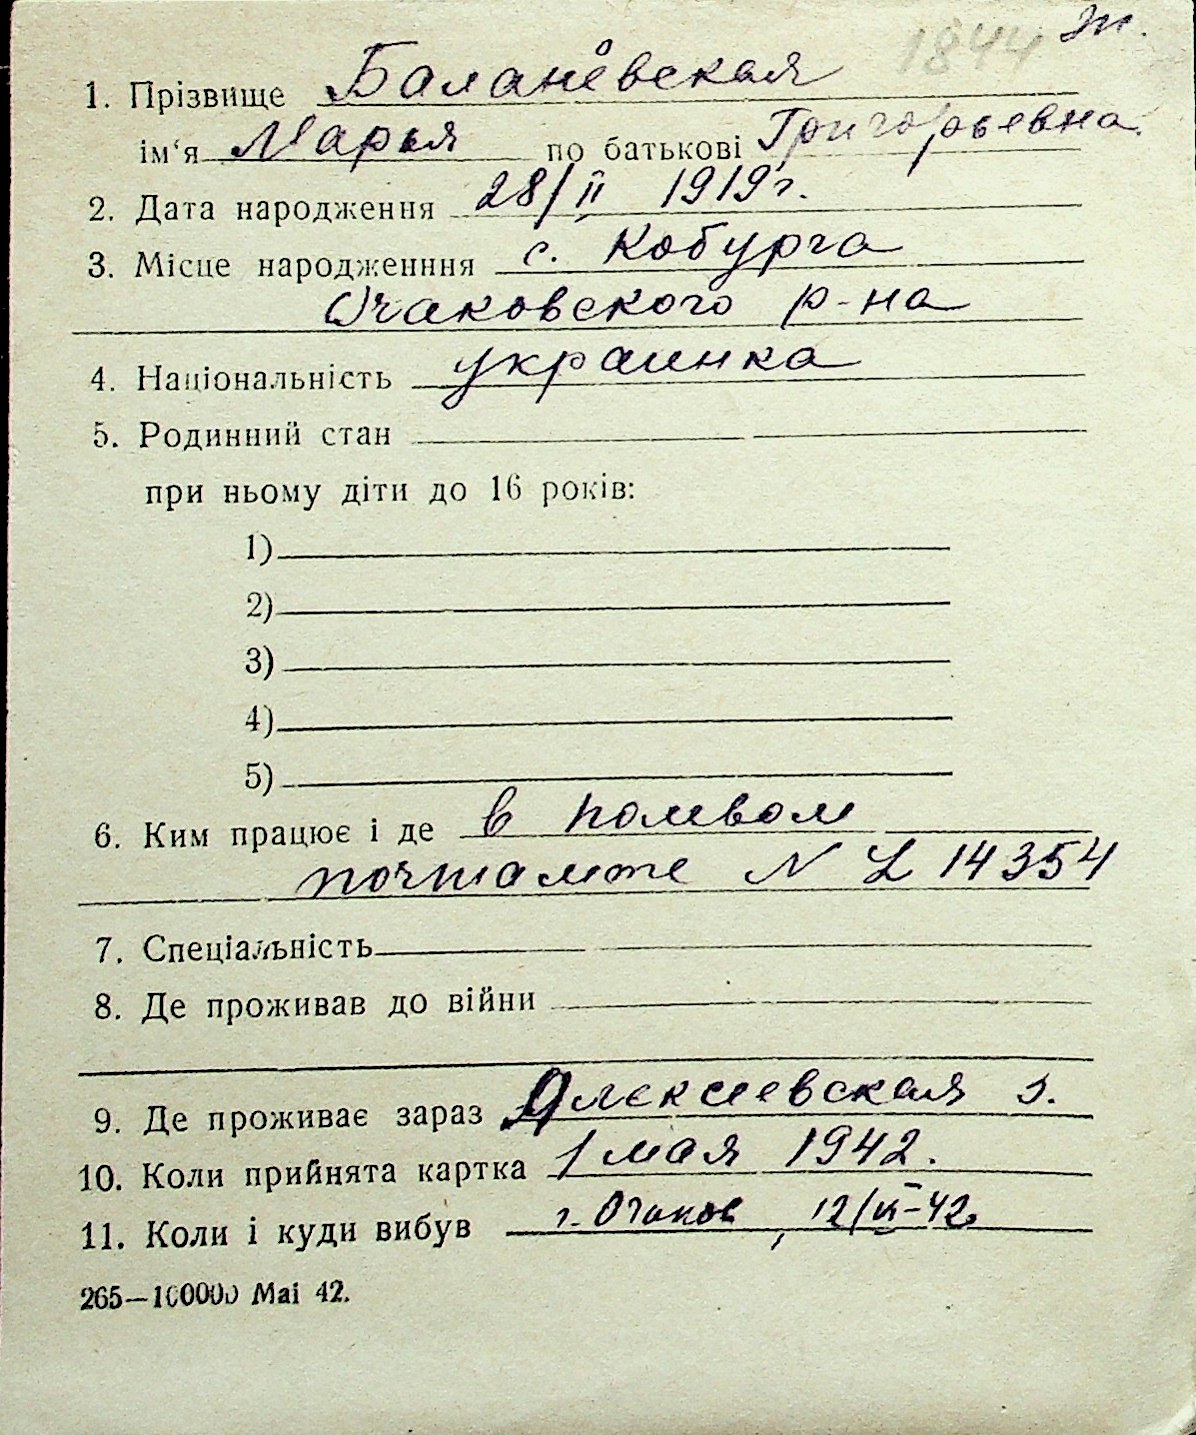 1844 Ж.
1. Прізвище Баланёвская
ім‘я Марья по батькові Григорьевна
2. Дата народження 28/II 1919 г.
3. Місце народженння с. Кобурга
Очаковского р-на
4. Національність украинка
5. Родинний стан
при ньому діти до 16 років:
1)
2)
3)
4)
5)
6. Ким працює і де в полевом
почтамте N L 14354
7. Спеціальність
8. Де проживав до війни
9. Де проживає зараз Алексеевская 1.
10. Коли прийнята картка 1 мая 1942.
11. Коли і куди вибув г. Очаков, 12/VI-42
265—100000 Mai 42.